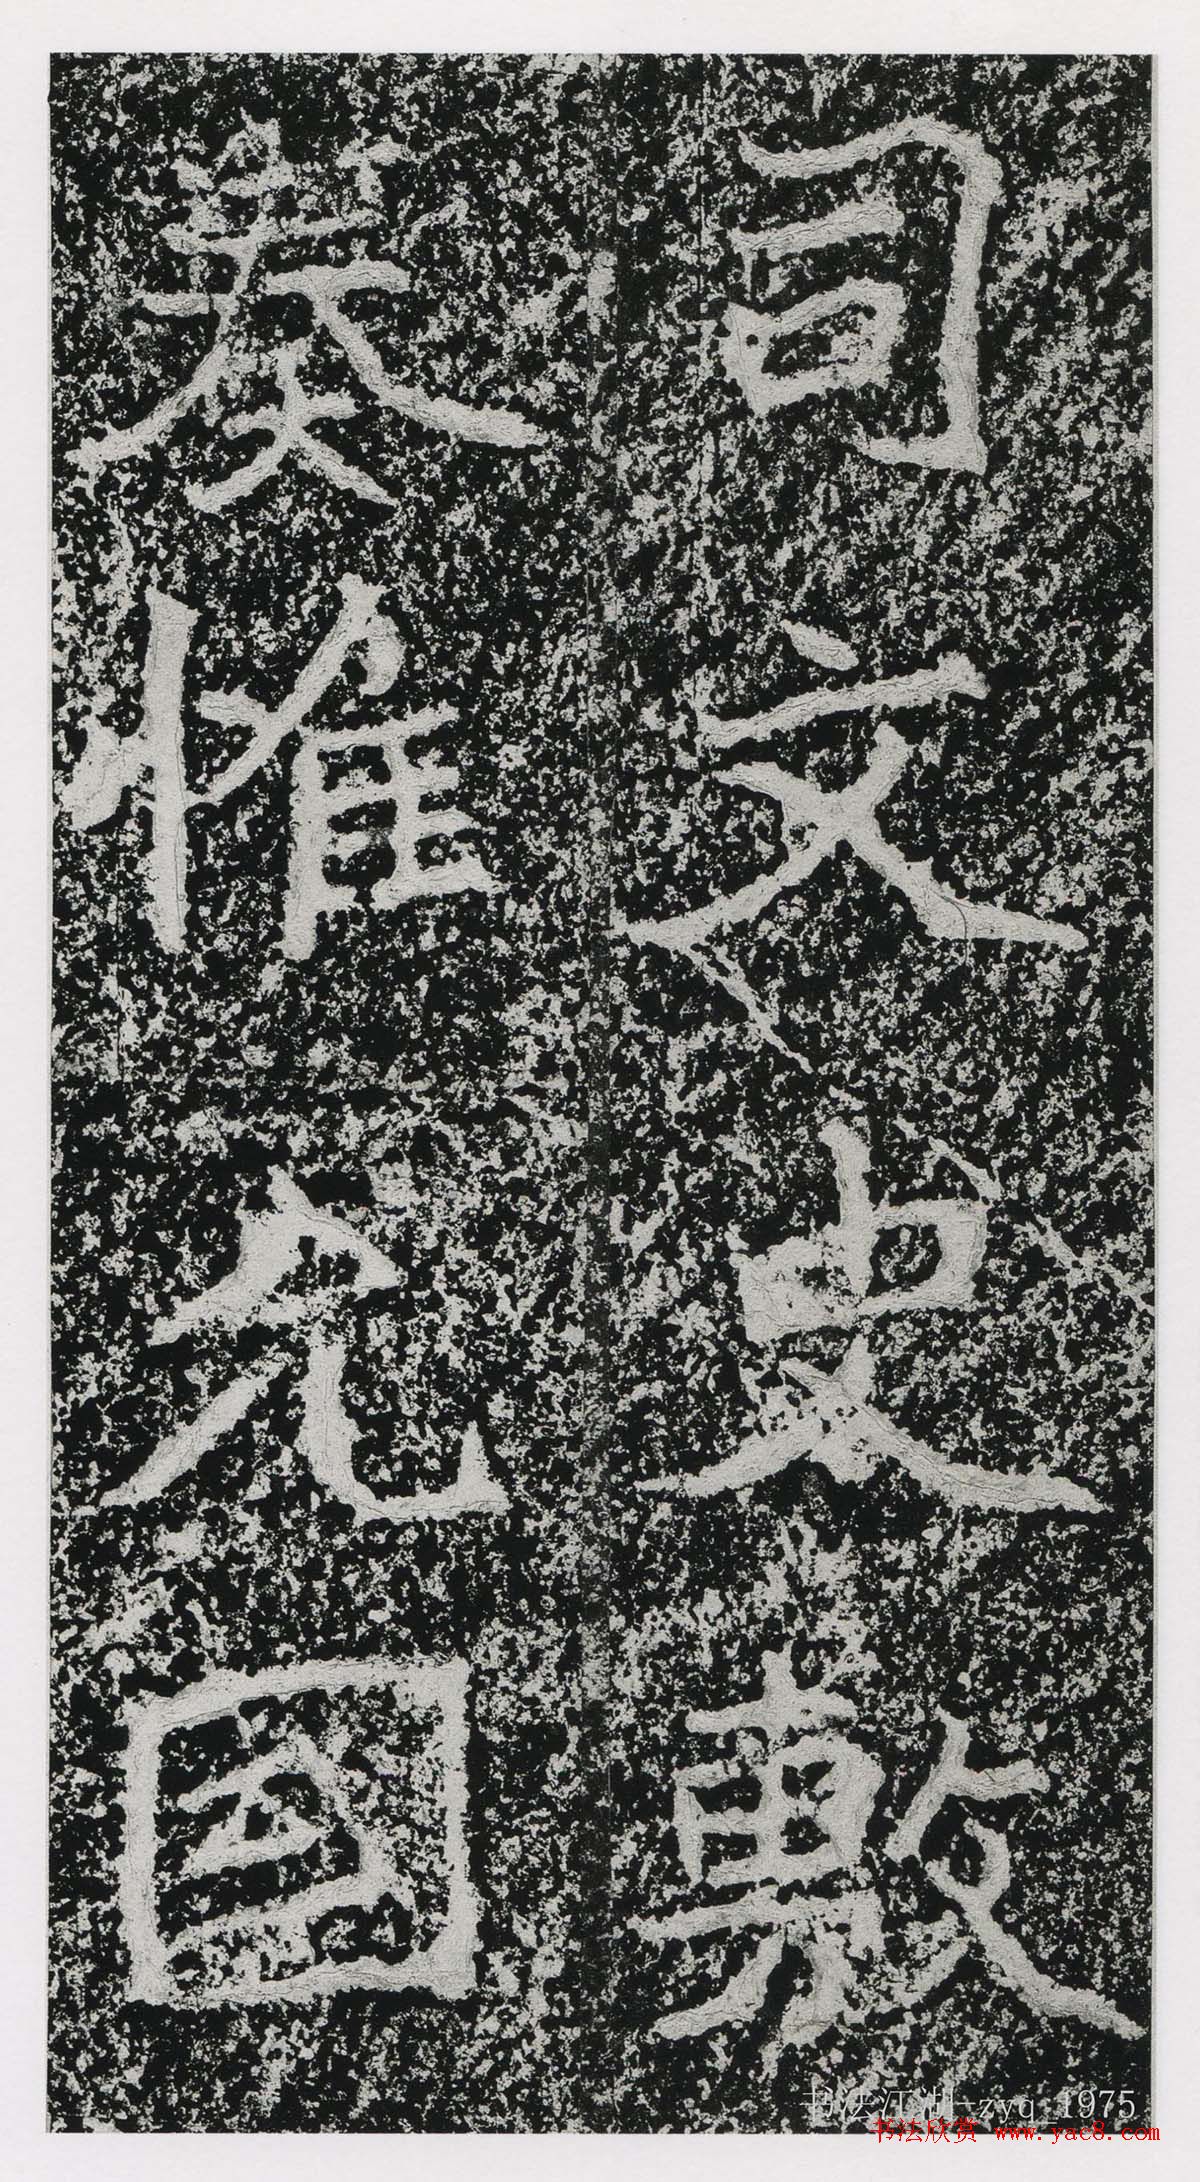 司文史敷
奏惟允國
书法江湖-zyq_1975
书法欣赏 www.yac8.com